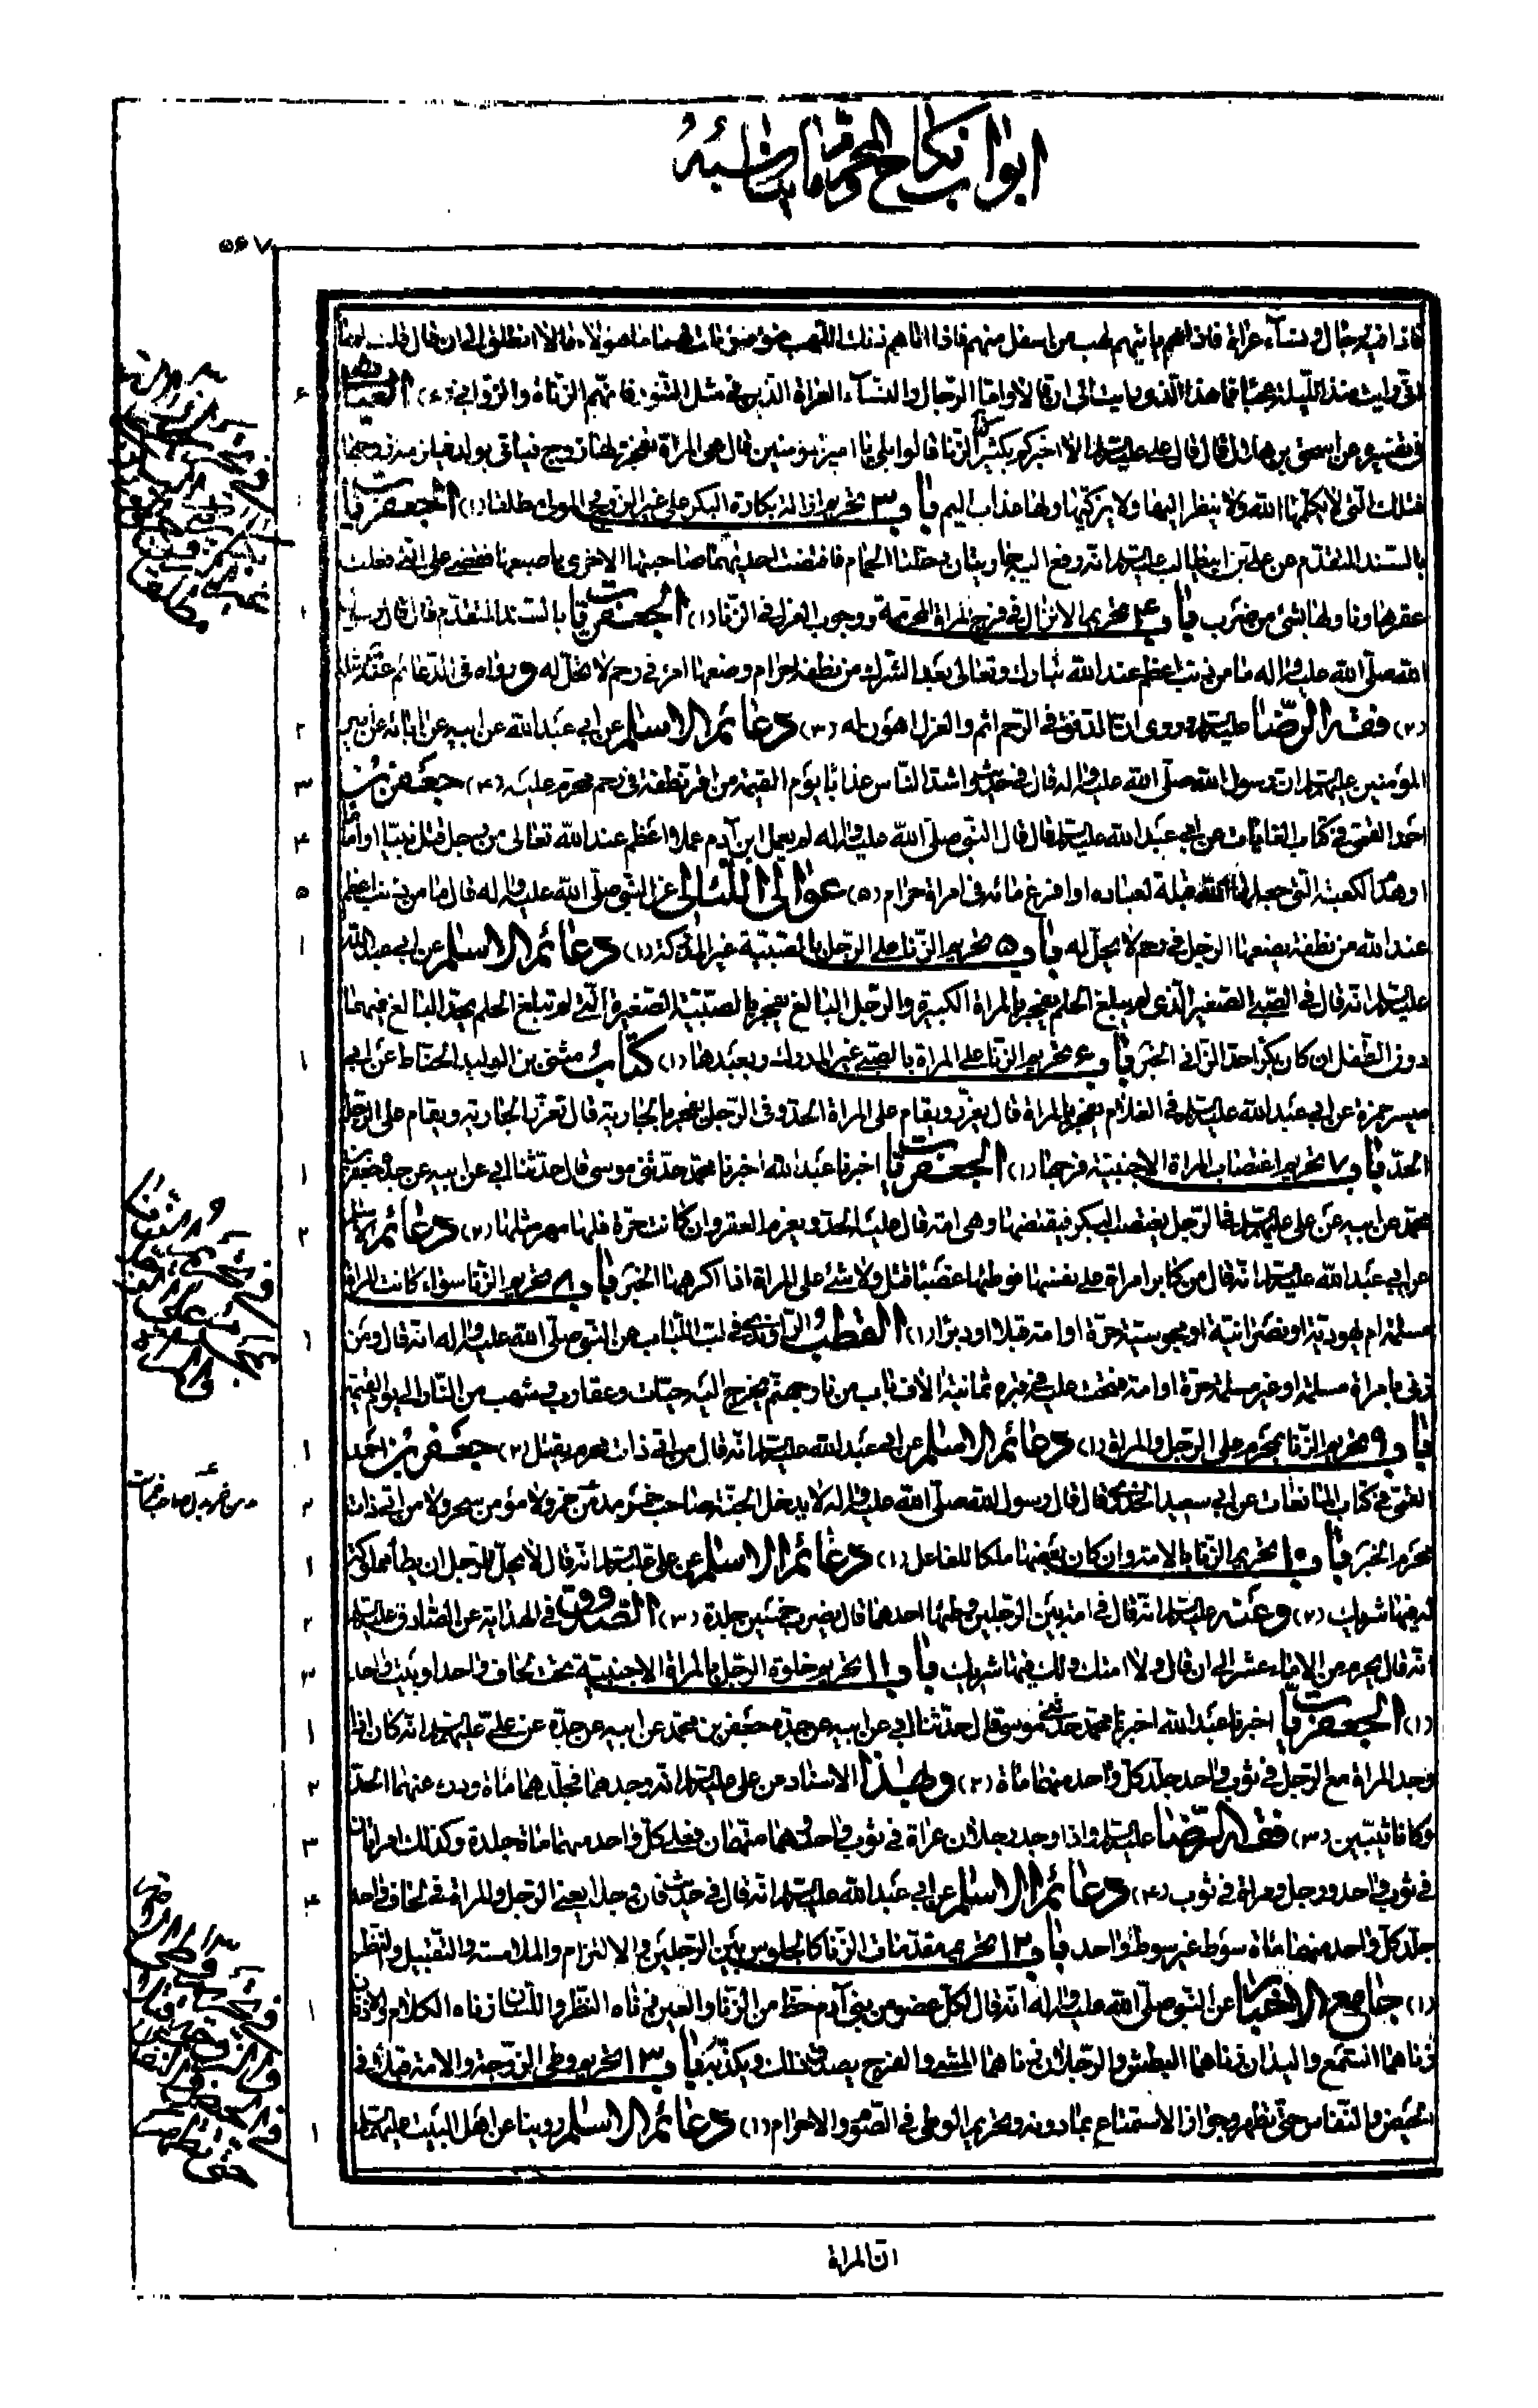 ابواب نكاح المحرم وما يناسبه
٥٦٧
فاذا فيه رجال ونساء عراة فاذاهم ياتيهم لهب من اسفل منهم فاذا اتاهم ذلك اللهب ضوضوا قلت لهما ما هؤلاء قالا انطلق الى ان قال قلت لهما
انى رايت منذ الليلة عجبا فما هذا الذى رايت الى ان قالا واما الرجال والنساء العراة الذين فى مثل التنور فانهم الزناة والزوانى (٤) العياشى
فى تفسيره عن اسحق بن هلال قال قال على عليه السلام الا اخبركم بكبير الزنا قالوا بلى يا امير المؤمنين قال هى المراة تفجر ولها زوج فتاتى بولد فتلزمه زوجها
فتلك التى لا يكلمها الله ولا ينظر اليها ولا يزكيها ولها عذاب اليم باب ٣ تحريم ازالة بكارة البكر على غير الزوج والمولى مطلقا (١) الجعفريات
بالسند المتقدم عن على بن ابيطالب عليه السلام انه رفع اليه جاريتان دخلتا الحمام فافتضت احديهما صاحبتها الاخرى باصبعها فقضى على التى فعلت
عقرها ونالها بشىء من ضرب باب ٤ تحريم الانزال فى فرج المراة المحرمة ووجوب العزل فى الزنا (١) الجعفريات بالسند المتقدم قال قال رسول
الله صلى الله عليه واله ما من ذنب اعظم عند الله تبارك وتعالى بعد الشرك من نطفة حرام وضعها امرء فى رحم لا تحل له ورواه فى الدعائم عنه مثله
(٢) فقه الرضا عليه السلام وروى ان الدفق فى الرحم اثم والعزل اهون له (٣) دعائم الاسلام عن ابى عبد الله عن ابيه عن ابائه عن امير
المؤمنين عليه السلام ان رسول الله صلى الله عليه واله قال فى حديث واشد الناس عذابا يوم القيمة من اقر نطفته فى رحم محرم عليه (٤) جعفر بن
احمد القمى فى كتاب الغايات عن ابى عبد الله عليه السلام قال قال النبى صلى الله عليه واله لم يعمل ابن آدم عملا اعظم عند الله تعالى من رجل قتل نبيا او اماما
او هدم الكعبة التى جعلها الله قبلة لعباده او افرغ مائه فى امراة حرام (٥) عوالى اللئالى عن النبى صلى الله عليه واله قال ما من ذنب اعظم
عند الله من نطفة يضعها الرجل فى رحم لا يحل له باب ٥ تحريم الزنا على الرجل بالصبية غير المدركة (١) دعائم الاسلام عن ابى عبد الله
عليه السلام انه قال فى الصبى الصغير الذى لم يبلغ الحلم يفجر بالمراة الكبيرة والرجل البالغ يفجر بالصبية الصغيرة التى لم تبلغ الحلم يحد البالغ منهما
دون الطفل ان كان بكرا حد الزانى الخبر باب ٦ تحريم الزنا على المراة بالصبى غير المدرك وبعبدها (١) كتاب مثنى بن الوليد الحناط عن ابى
ميسر حمزة عن ابى عبد الله عليه السلام فى الغلام يفجر بالمراة قال يعزر ويقام على المراة الحد وفى الرجل يفجر بالجارية قال تعزر الجارية ويقام على الرجل
الحد باب ٧ تحريم اغتصاب المراة الاجنبية فرجها (١) الجعفريات اخبرنا عبد الله اخبرنا محمد حدثنى موسى قال حدثنا ابى عن ابيه عن جده جعفر بن
محمد عن ابيه عن على عليه السلام فى الرجل يغتصب البكر فيقتضها وهى امة قال عليه الحد ويغرم العقر وان كانت حرة فلها مهر مثلها (٢) دعائم الاسلام
عن ابى عبد الله عليه السلام انه قال من كابر امراة على نفسها فوطئها غصبا قتل ولا شئ على المراة اذا اكرهها الخبر باب ٨ تحريم الزنا سواء كانت المراة
مسلمة ام يهودية او نصرانية او مجوسية حرة او امة قبلا او دبرا (١) القطب الراوندى فى لب اللباب عن النبى صلى الله عليه واله انه قال ومن
زنى بامراة مسلمة او غير مسلمة حرة او امة فتحت عليه فى قبره ثمانية الاف باب من نار جهنم يخرج اليه حيات وعقارب وشهب من النار الى يوم القيمة
باب ٩ تحريم الزنا بمحرم على الرجل والمراة (١) دعائم الاسلام عن ابى عبد الله عليه السلام انه قال من اتى ذات محرم يقتل (٢) جعفر بن احمد
القمى فى كتاب المانعات عن ابى سعيد الخدرى قال قال رسول الله صلى الله عليه واله لا يدخل الجنة صاحب خمس مدمن خمر ولا مؤمن بسحر ولا من اتى ذات
محرم الخبر باب ١٠ تحريم الزنا بالامة وان كان بعضها ملكا للفاعل (١) دعائم الاسلام عن على عليه السلام انه قال لا يحل للرجل ان يطأ مملوكة
له فيها شريك (٢) وعنه عليه السلام انه قال فى امة بين الرجلين وطئها احدهما قال يضرب خمسين جلدة (٣) الصدوق فى الهداية عن الصادق عليه السلام
انه قال يحرم من الاماء عشر الى ان قال ولا امتك ولك فيها شريك باب ١١ تحريم خلوة الرجل بالمراة الاجنبية تحت لحاف واحد او بيت واحد
(١) الجعفريات اخبرنا عبد الله اخبرنا محمد حدثنى موسى قال حدثنا ابى عن ابيه عن جده جعفر بن محمد عن ابيه عن جده عن على عليه السلام انه كان اذا
وجد المراة مع الرجل فى ثوب واحد جلد كل واحد منهما مائة (٢) وبهذا الاسناد عن على عليه السلام انه وجدهما فجلدهما مائة ودرء عنهما الحد
وكانا ثيبين (٣) فقه الرضا عليه السلام واذا وجد رجلان عراة فى ثوب واحد وهما متهمان فعلى كل واحد منهما مائة جلدة وكذلك امراتان
فى ثوب واحد ورجل وامراة فى ثوب (٤) دعائم الاسلام عن ابى عبد الله عليه السلام انه قال فى حديث فان وجدا يعنى الرجل والمراة فى لحاف واحد
جلد كل واحد منهما مائة سوط غير سوط واحد باب ١٢ تحريم مقدمات الزنا كالجلوس بين الرجلين والالتزام والملامسة والتقبيل والنظر
(١) جامع الاخبار عن النبى صلى الله عليه واله انه قال لكل عضو من بنى آدم حظ من الزنا والعين زناه النظر واللسان زناه الكلام والاذنان
زناهما السمع واليدان زناهما البطش والرجلان زناهما المشى والفرج يصدق ذلك ويكذبه باب ١٣ تحريم وطى الزوجة والامة قبلا فى
الحيض والنفاس حتى تطهر وجواز الاستمتاع بما دونه وتحريم الوطى فى الصوم والاحرام (١) دعائم الاسلام روينا عن اهل البيت عليهم السلام
ان المراة